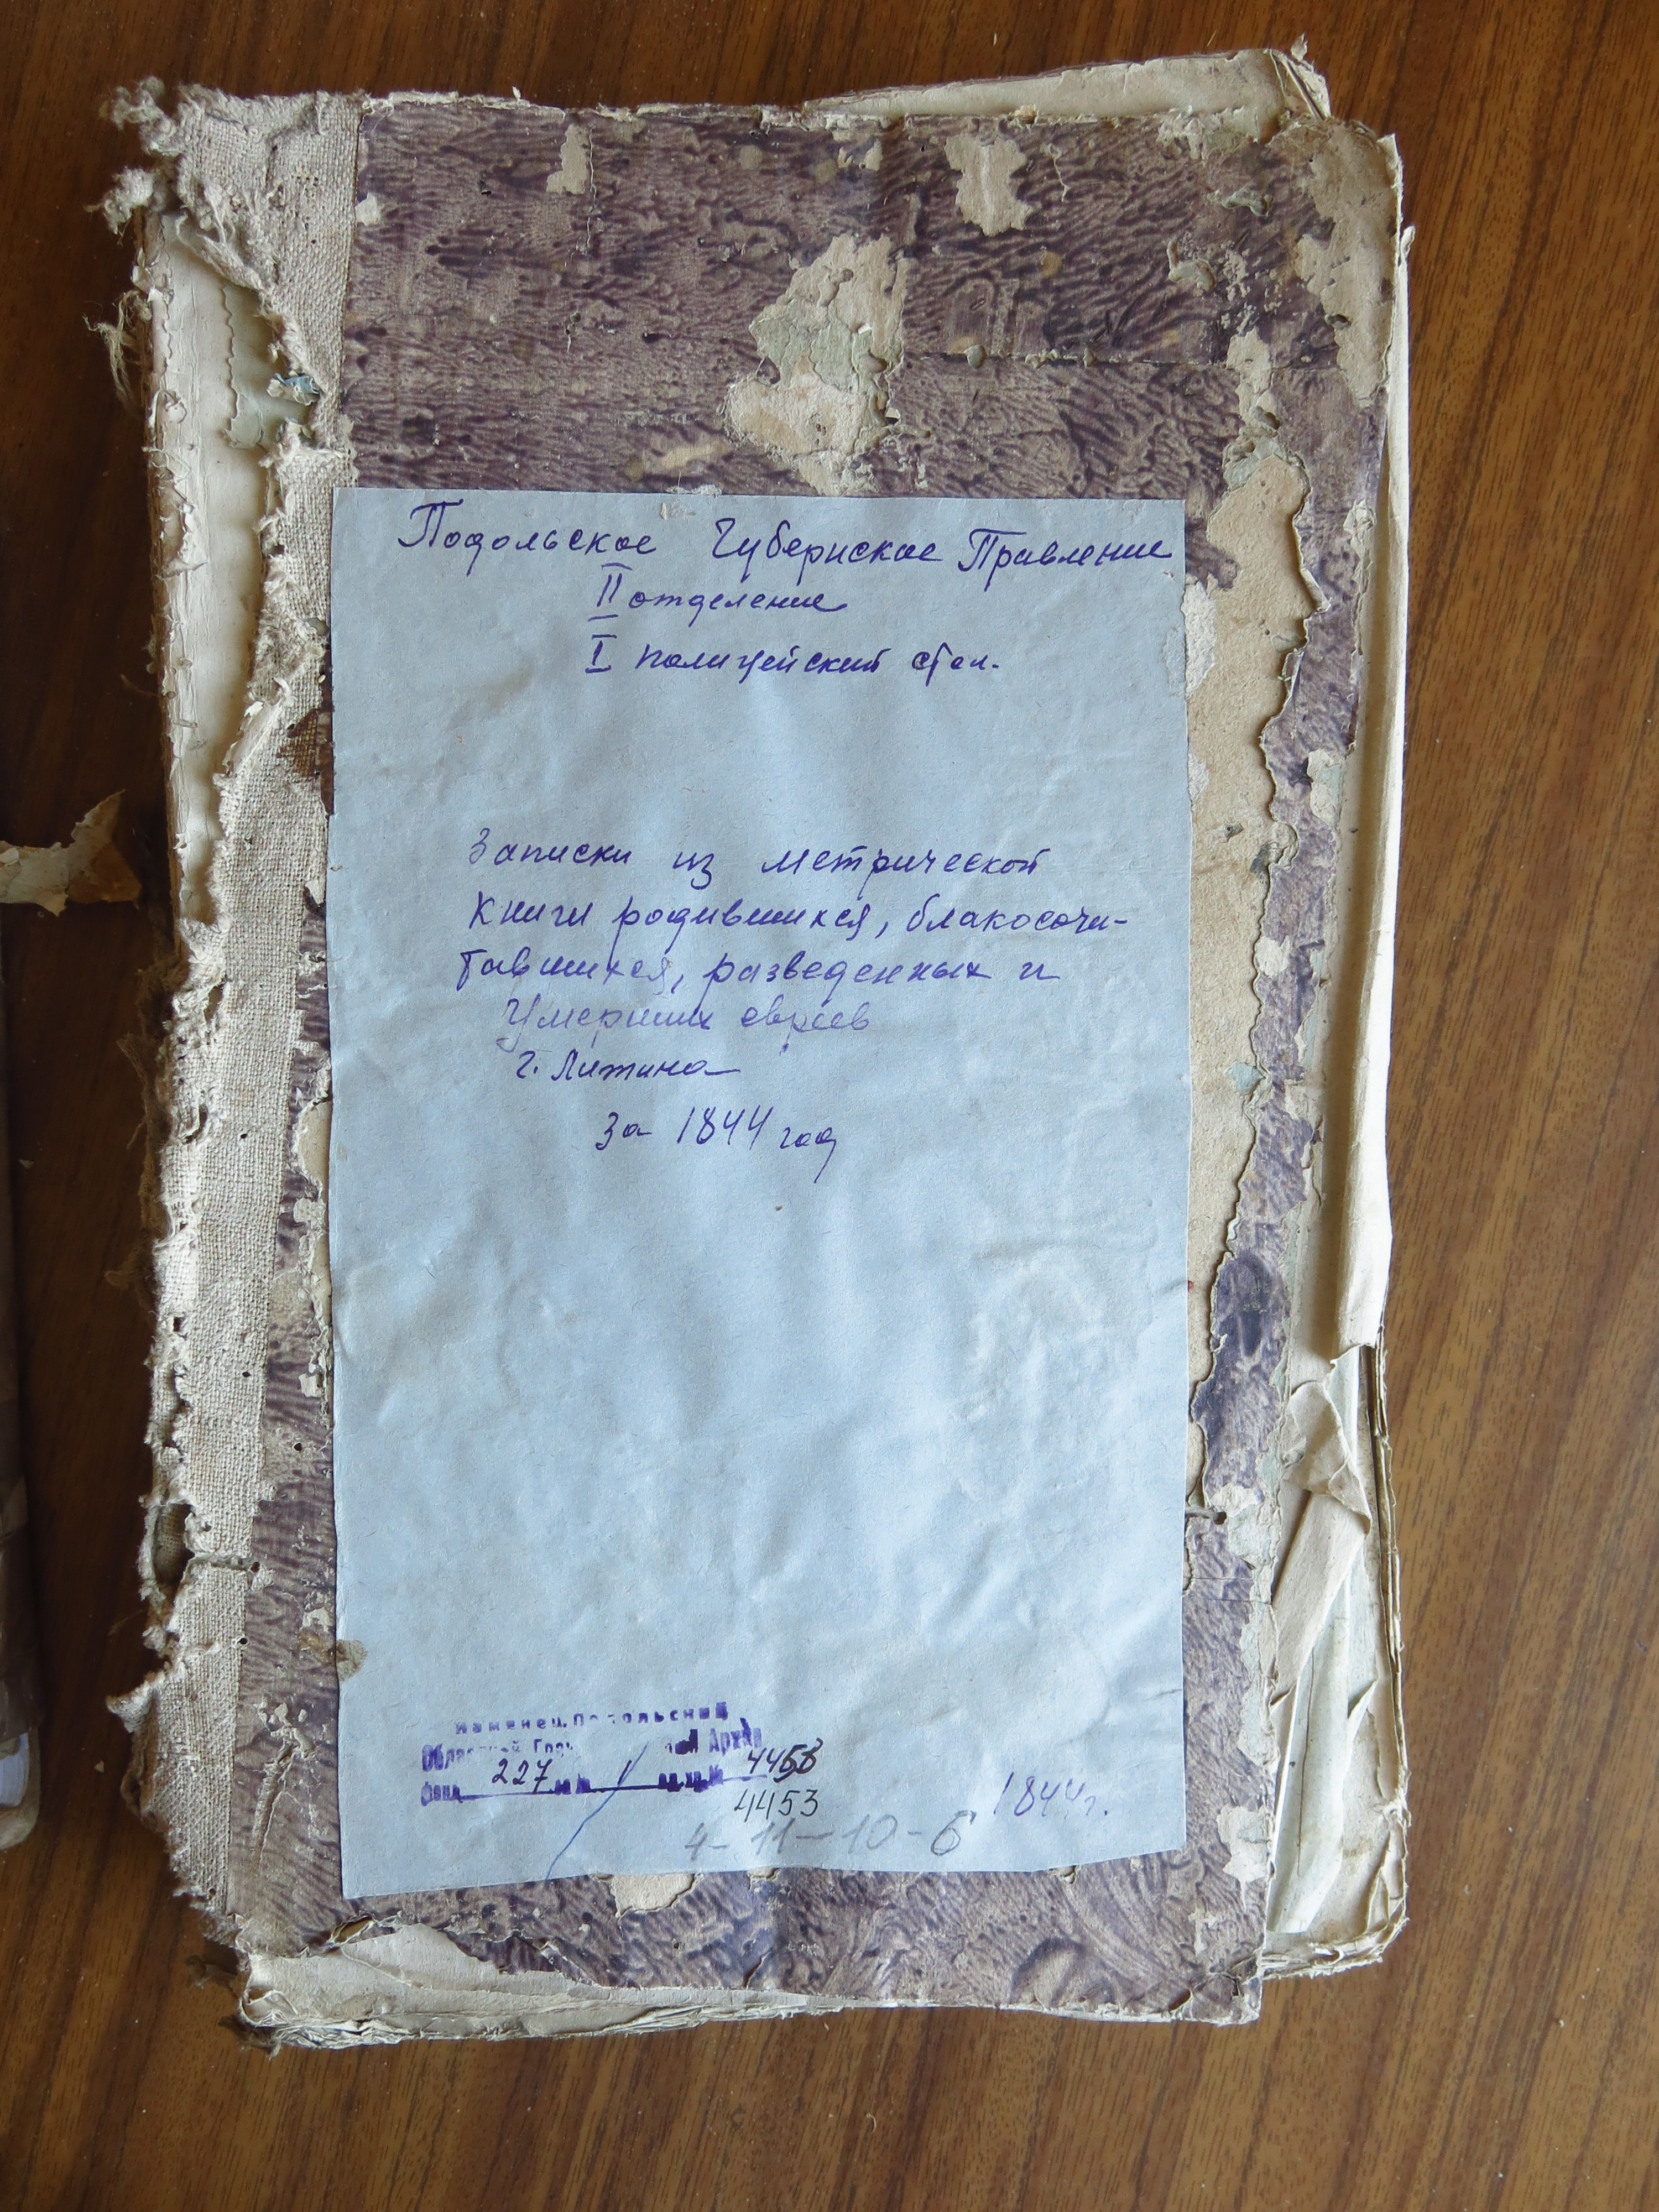 Подольское Губернское Правление
II отделение
I полицейский стол.
Записки из метрической
книги родившихся, блакосочи-
тавшихся, разведенных и
Умерших евреев
г. Литина
за 1844 год
Каменец.Подольский
Областной Архив
Фонд 227 оп № 1 ед.хр.№ 4453
4453
1844 г.
4-11-10-6